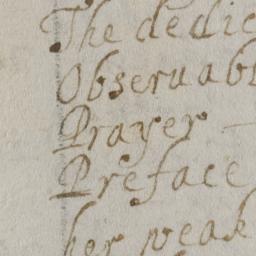 The dedic
Obseruabl
Prayer —
Preface
her weak